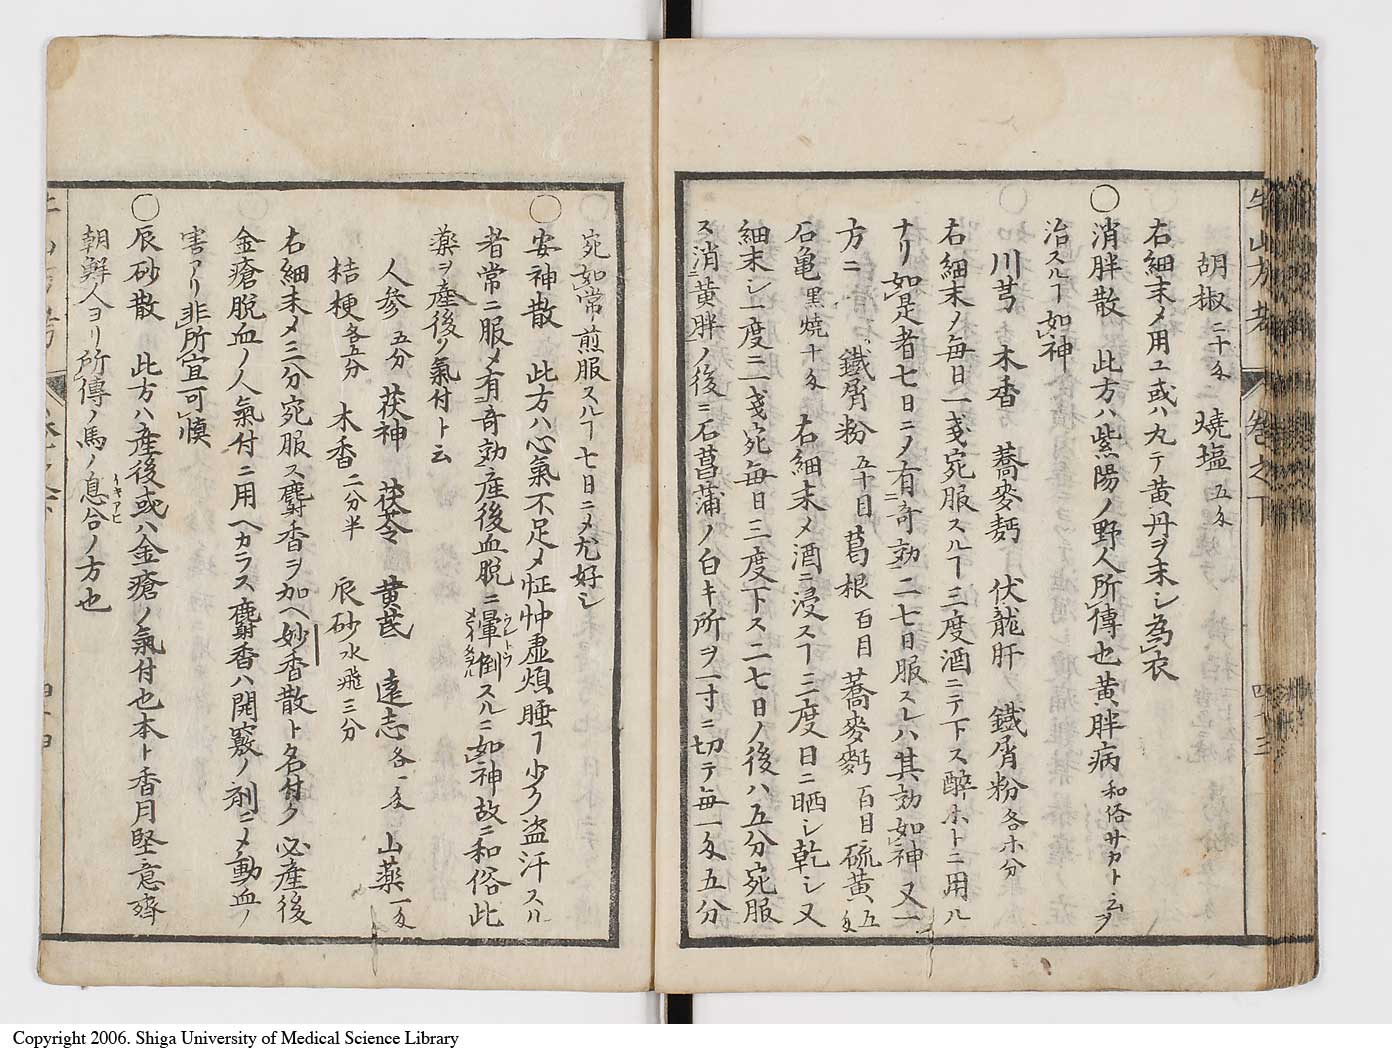 牛山方考 巻之下 四十三
胡椒二十匁 焼塩五匁
右細末メ用ユ或ハ丸テ黄丹ヲ末シ為衣
〇消胖散 此方ハ紫陽ノ野人所傳也黄胖病和俗サカトムヲ
治スルヿ如神
川芎 木香 蕎麥麪 伏龍肝 鐵屑粉各ホ分
右細末ノ毎日一戔宛服スルヿ三度酒ニテ下ス醉ホトニ用ル
ナリ如是者七日ニノ有奇効二七日服スレハ其効如神又一
方ニ 鐵屑粉五十目 葛根百目 蕎麥麪百目 硫黄五匁
石亀黒焼十匁 右細末メ酒ニ浸スヿ三度日ニ晒シ乾シ又
細末シ一度二一戔宛毎日三度下ス二七日ノ後ハ五分宛服
ス消黄胖ノ後ニ石菖蒲ノ白キ所ヲ一寸ニ切テ毎一匁五分
宛如常煎服スルヿ七日ニメ尤好シ
〇安神散 此方ハ心氣不足メ怔忡虚煩睡ヿ少ク盗汗スル
者常ニ服メ有奇効産後血脱ニ暈倒スルニ如神故ニ和俗此
薬ヲ産後ノ氣付ト云
人參五分 茯神 茯苓 黄芪 遠志各一匁 山薬一匁
桔梗各五分 木香二分半 辰砂水飛三分
右細末メ三分宛服ス麝香ヲ加ヘ妙香散ト名付ク必産後
金瘡脱血ノ人氣付ニ用ヘカラス麝香ハ開竅ノ剤ニメ動血ノ
害アリ非所宜可慎
〇辰砂散 此方ハ産後或ハ金瘡ノ氣付也本ト香月堅意齋
朝鮮人ヨリ所傳ノ馬ノ息合ノ方也